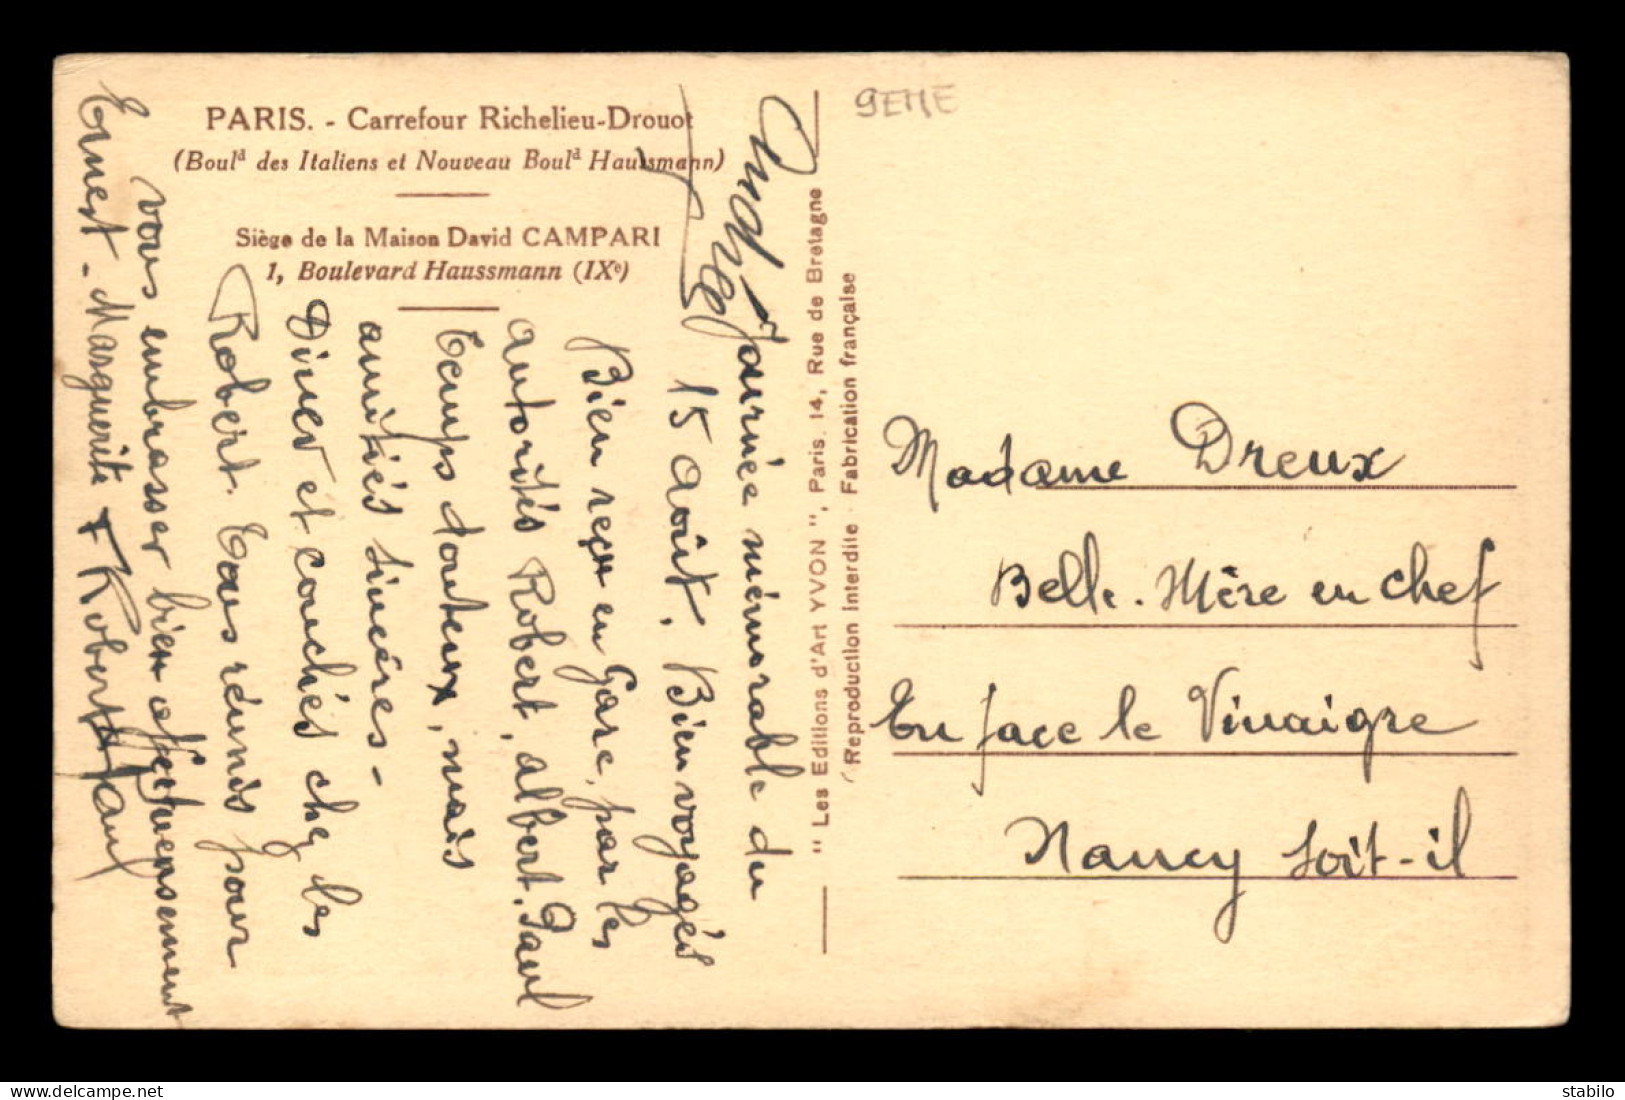 PARIS. - Carrefour Richelieu-Drouot
(Boulᵈ des Italiens et Nouveau Boulᵈ Haussmann)
Siège de la Maison David CAMPARI
1, Boulevard Haussmann (IXᵉ)
Journée mémorable du
15 août. Bien voyagés
Bien reçu en Gare, par les
autorités Robert, albert, Paul
temps douteux, mais
amitiés sincères -
Diner et couchés chez les
Robert. Tous réunis pour
vous embrasser bien affectueusement
Ernest - Marguerite + Robert Paul
" Les Editions d'Art YVON ", Paris. 14, Rue de Bretagne
Reproduction Interdite - Fabrication française
9EME
Madame Dreux
Belle-Mère en chef
En face le Vinaigre
Nancy soit-il
stabilo